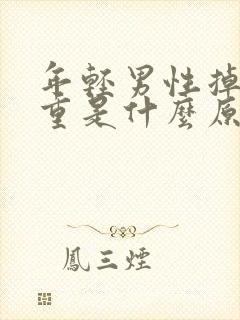 年輕男性掉
重是什麼原
鳳三煙